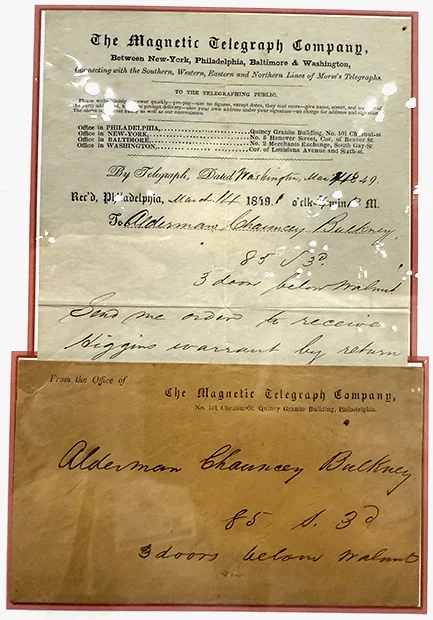 The Magnetic Telegraph Company,
Between New-York, Philadelphia, Baltimore & Washington,
Connecting with the Southern, Western, Eastern and Northern Lines of Morse's Telegraphs.
TO THE TELEGRAPHING PUBLIC.
Please write plainly answer quickly pre-pay use no figures, except dates, they cost more give name, street, and
prompt delivery under your own signature for charge for address and
The above
Office in PHILADELPHIA, Quincy Granite Building, No. 101 Chesnut-st
Office in NEW-YORK, No. 5 Hanover Street, Cor. of Beaver St.
Office in BALTIMORE, No. 2 Merchants Exchange, South Gay St.
Office in WASHINGTON, Cor. of Louisiana Avenue and Sixth-st.
By Telegraph, Dated Washington, Mar 1849.
Rec'd, Philadelphia, March 14 1849, o'clk, min. M.
To Alderman Chauncey Bulkney
85 S 3d
3 doors below Walnut
Send me order to receive
Higgins warrant by return
From the Office of
The Magnetic Telegraph Company,
No. 101 Chesnut-St. Quincy Granite Building, Philadelphia.
Alderman Chauncey Bulkney
85 S. 3d
3 doors below Walnut